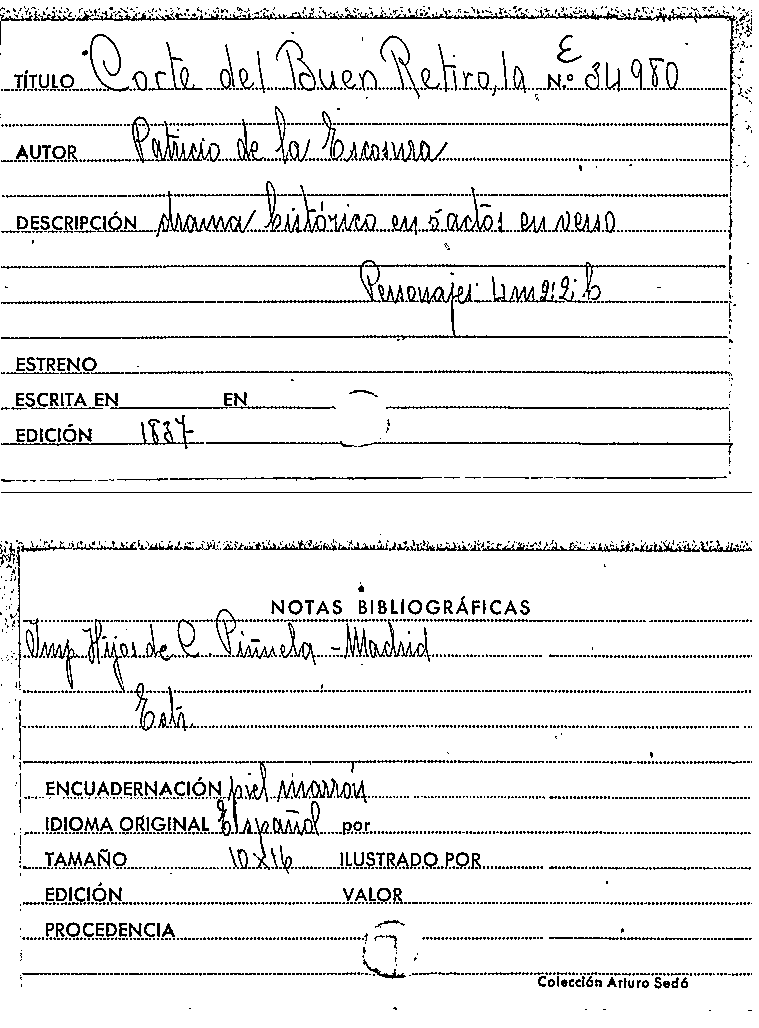 E
TÍTULO Corte del Buen Retiro, la N.º 34980
AUTOR Patricio de la Escosura
DESCRIPCIÓN drama histórico en 5 actos en verso
Personajes:
ESTRENO
ESCRITA EN EN
EDICIÓN 1837
NOTAS BIBLIOGRÁFICAS
Imp Hijos de C. Piñuela - Madrid
ENCUADERNACIÓN piel marrón
IDIOMA ORIGINAL Español por
TAMAÑO 10x16 ILUSTRADO POR
EDICIÓN VALOR
PROCEDENCIA
Colección Arturo Sedó